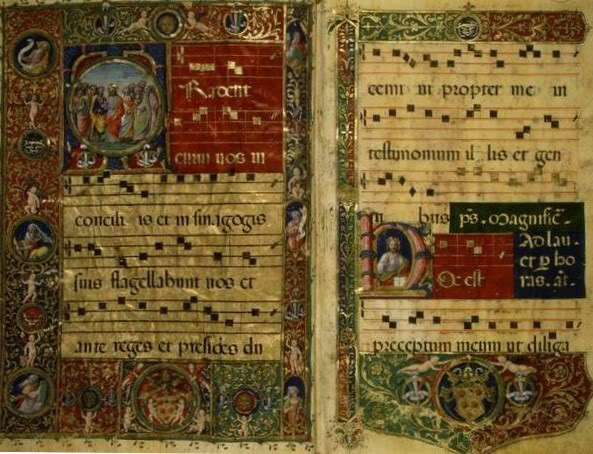 TRadent
enim uos in
concili is et in sinagogis
suis flagellabunt uos et
ante reges et presides du
cemini propter me in
testimonium il lis et gen
ti bus ps. Magnific̄.
HOc est
Ad lau-
et p ho
ras. at.
preceptum meum ut diliga